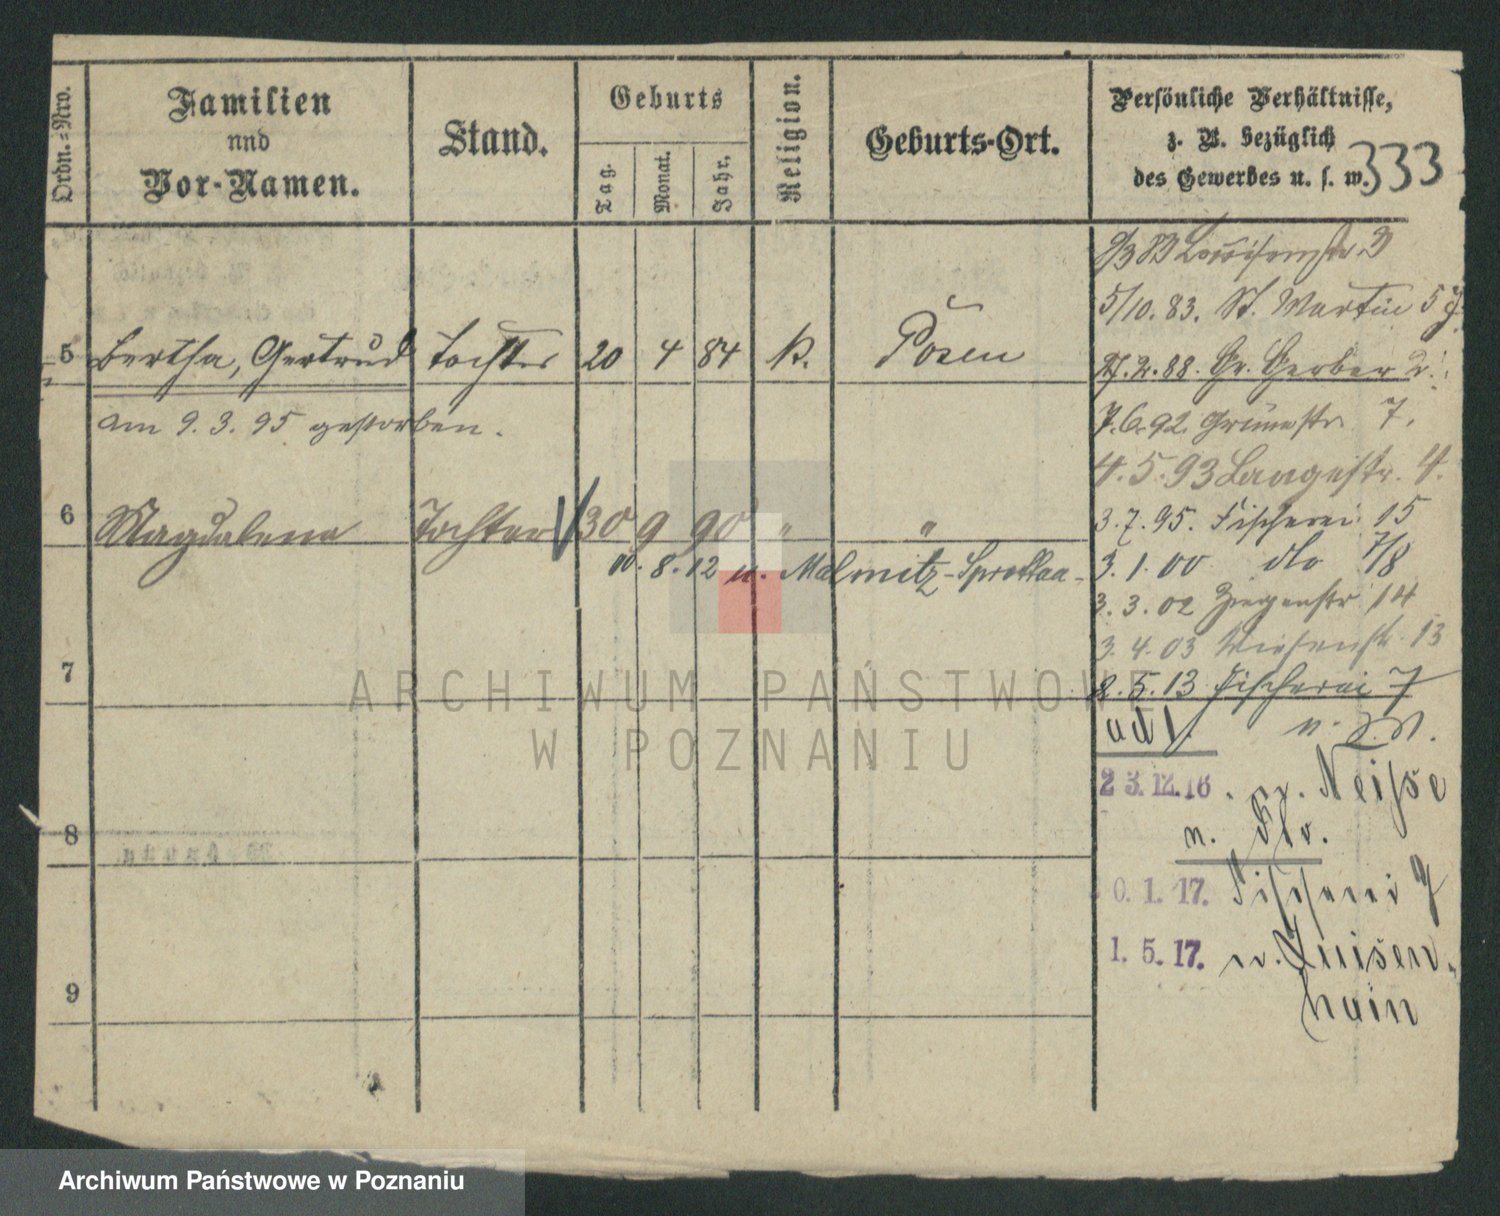 Ordn.=Nro.
Familien
und
Vor-Namen.
Stand.
Geburts
Tag.
Monat.
Jahr.
Religion.
Geburts-Ort.
Persönliche Verhältnisse,
z. B. bezüglich
des Gewerbes u. s. w.
333
Louisenstr. 3
5/10. 83. St. Martin 57
5 Bertha, Gertrud Tochter 20 4 84 k. Posen
2. 88. Gr. Gerber 2
am 9. 3. 95 gestorben.
7. 6. 92. Grünestr. 7.
4. 5. 93 Langestr. 4.
6 Magdalena Tochter 30 9 90 " "
3. 7. 95. Fischerei 15
10. 8. 12 u. Malmitz-Sprottau
3. 1. 00 dto 7/8
3. 3. 02 Ziegenstr. 14
3. 4. 03 Wiesenstr. 13
7
2. 5. 13 Fischerei 7
ad 1.
23. 12. 16. Neisse
8
n.
0. 1. 17. Fischerei 7
1. 5. 17. n. Luisen-
hain
9
ARCHIWUM PAŃSTWOWE
W POZNANIU
Archiwum Państwowe w Poznaniu